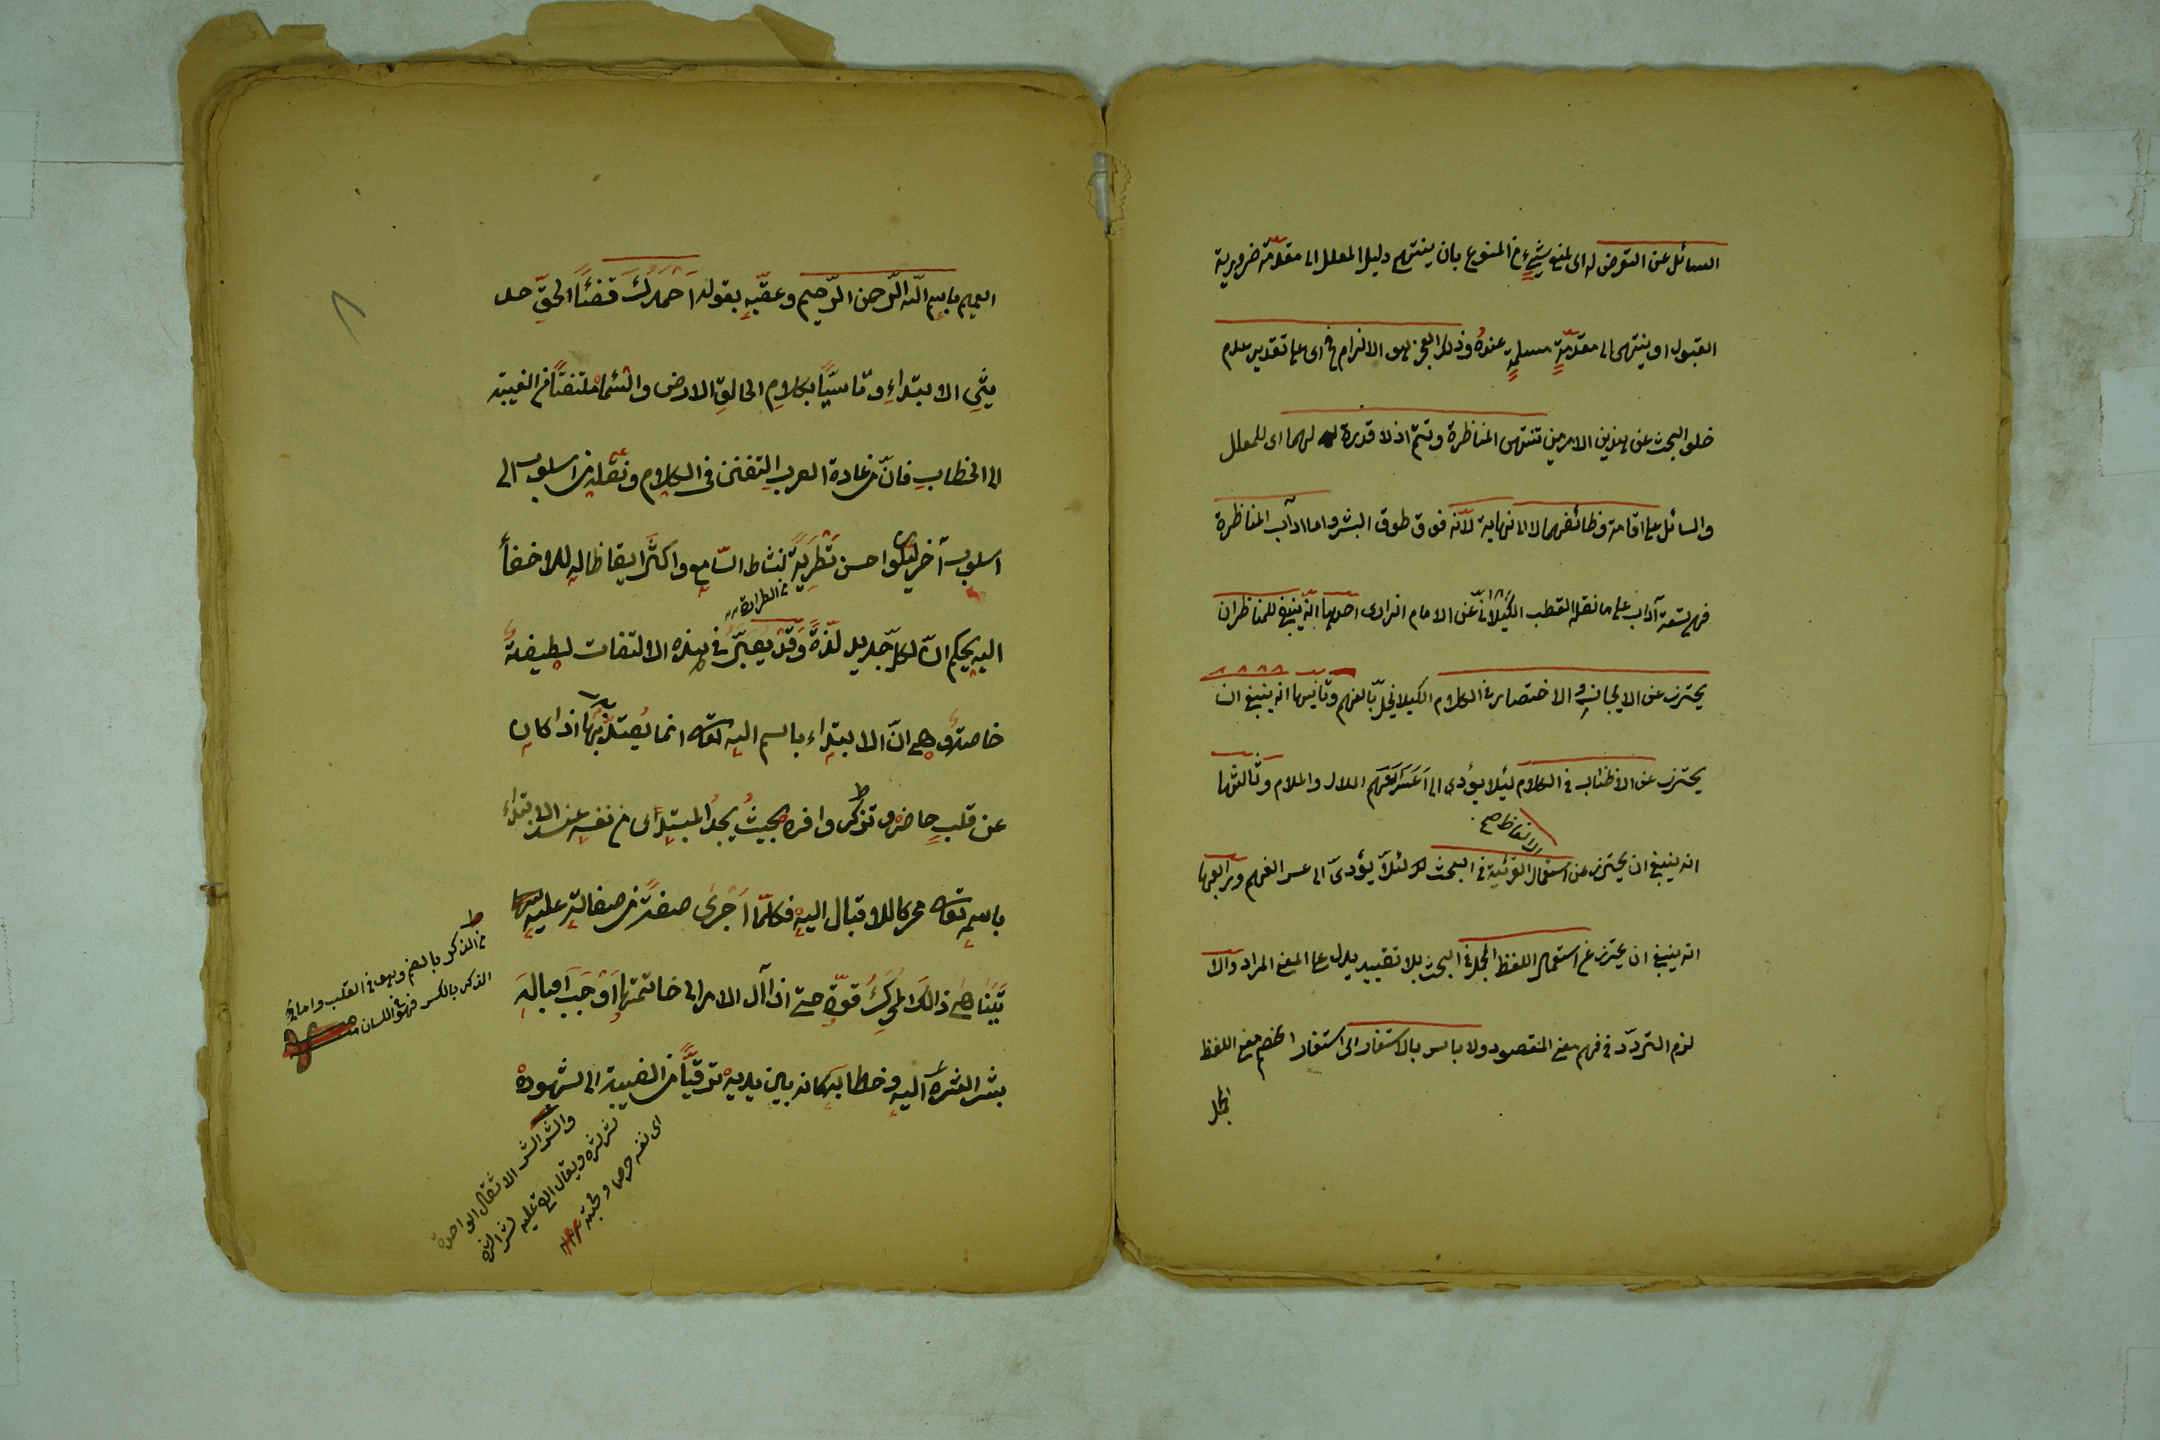 السائل عن التعرض له اى لمنع شيئ من الممنوع بان ينتهى دليل المعلل الى مقدمة ضرورية
القبول او ينتهى الى مقدمة مسلمة عنده وذلك العجز هو الالزام فح اى على تقدير عدم
خلو البحث عن هذين الامرين تنتهى المناظرة وتتم اذ لا قدرة لهما اى للمعلل
والسائل على اقامة وظائفهما لا الى نهاية لانه فوق طوق البشر واما اداب المناظرة
فهى تسعة آداب على ما نقله القطب الكيلانى عن الامام الرازى احدها انه ينبغى للمناظر ان
يحترز عن الايجاز و الاختصار فى الكلام الكيلا يخل بالفهم وثانيها انه ينبغى ان
يحترز عن الاطناب فى الكلام لئلا يؤدى الى الملال والملام وثالثها
الالفاظ صح
انه ينبغى ان يحترز عن استعمال الغريبة فى البحث لئلا يؤدى الى عسر الفهم ورابعها
انه ينبغى ان يحترز عن استعمال اللفظ المجمل فى البحث بلا تقييد يدل على المعنى المراد والا
لزم التردد فى فهم معنى المقصود ولا باس بالاستفسار الى استفسار الخصم معنى اللفظ
المجمل
العميم باسم الله الرحمن الرحيم وعقبه بقوله احمدك قضئا لحق حد
يثى الابتداء وتاسيا بكلام الخالق الارض والسماء ملتفتا من الغيبة
الى الخطاب فان من عادة العرب التفنن فى الكلام ونقله من اسلوب الى
اسلوب آخر ليكون احسن تطرية لنشاط السامع واكثر ايقاظا له للاصغا
من الطراوة
اليه بحكم ان لكل جديد لذة وقد يعتبر فى هذه الالتفات لطيفة
خاصة وهى ان الابتداء باسم الله تعالى انما يعتد بها اذا كان
عن قلب حاضر و تذكر وافر بحيث يجد المبتدأ من نفسه عند الابتداء
باسمه تعالى محركا للاقبال اليه فكلما اجرى صفة من صفاته عليه
تبناهى ذالك المحرك قوة حتى اذا آل الامر الى خاتمتها اوجب اقباله
بشر الشره اليه وخطابه كانه بين يديه ترقيا من الغيبة الى الشهود
من الذكر بالضم وهو فى القلب واما
الذكر بالكسر فهو فى اللسان
والشراشر الاثقال الواحدة
شرشرة ويقال القى عليه شراشره
اى نفسه حرصا ومحبة